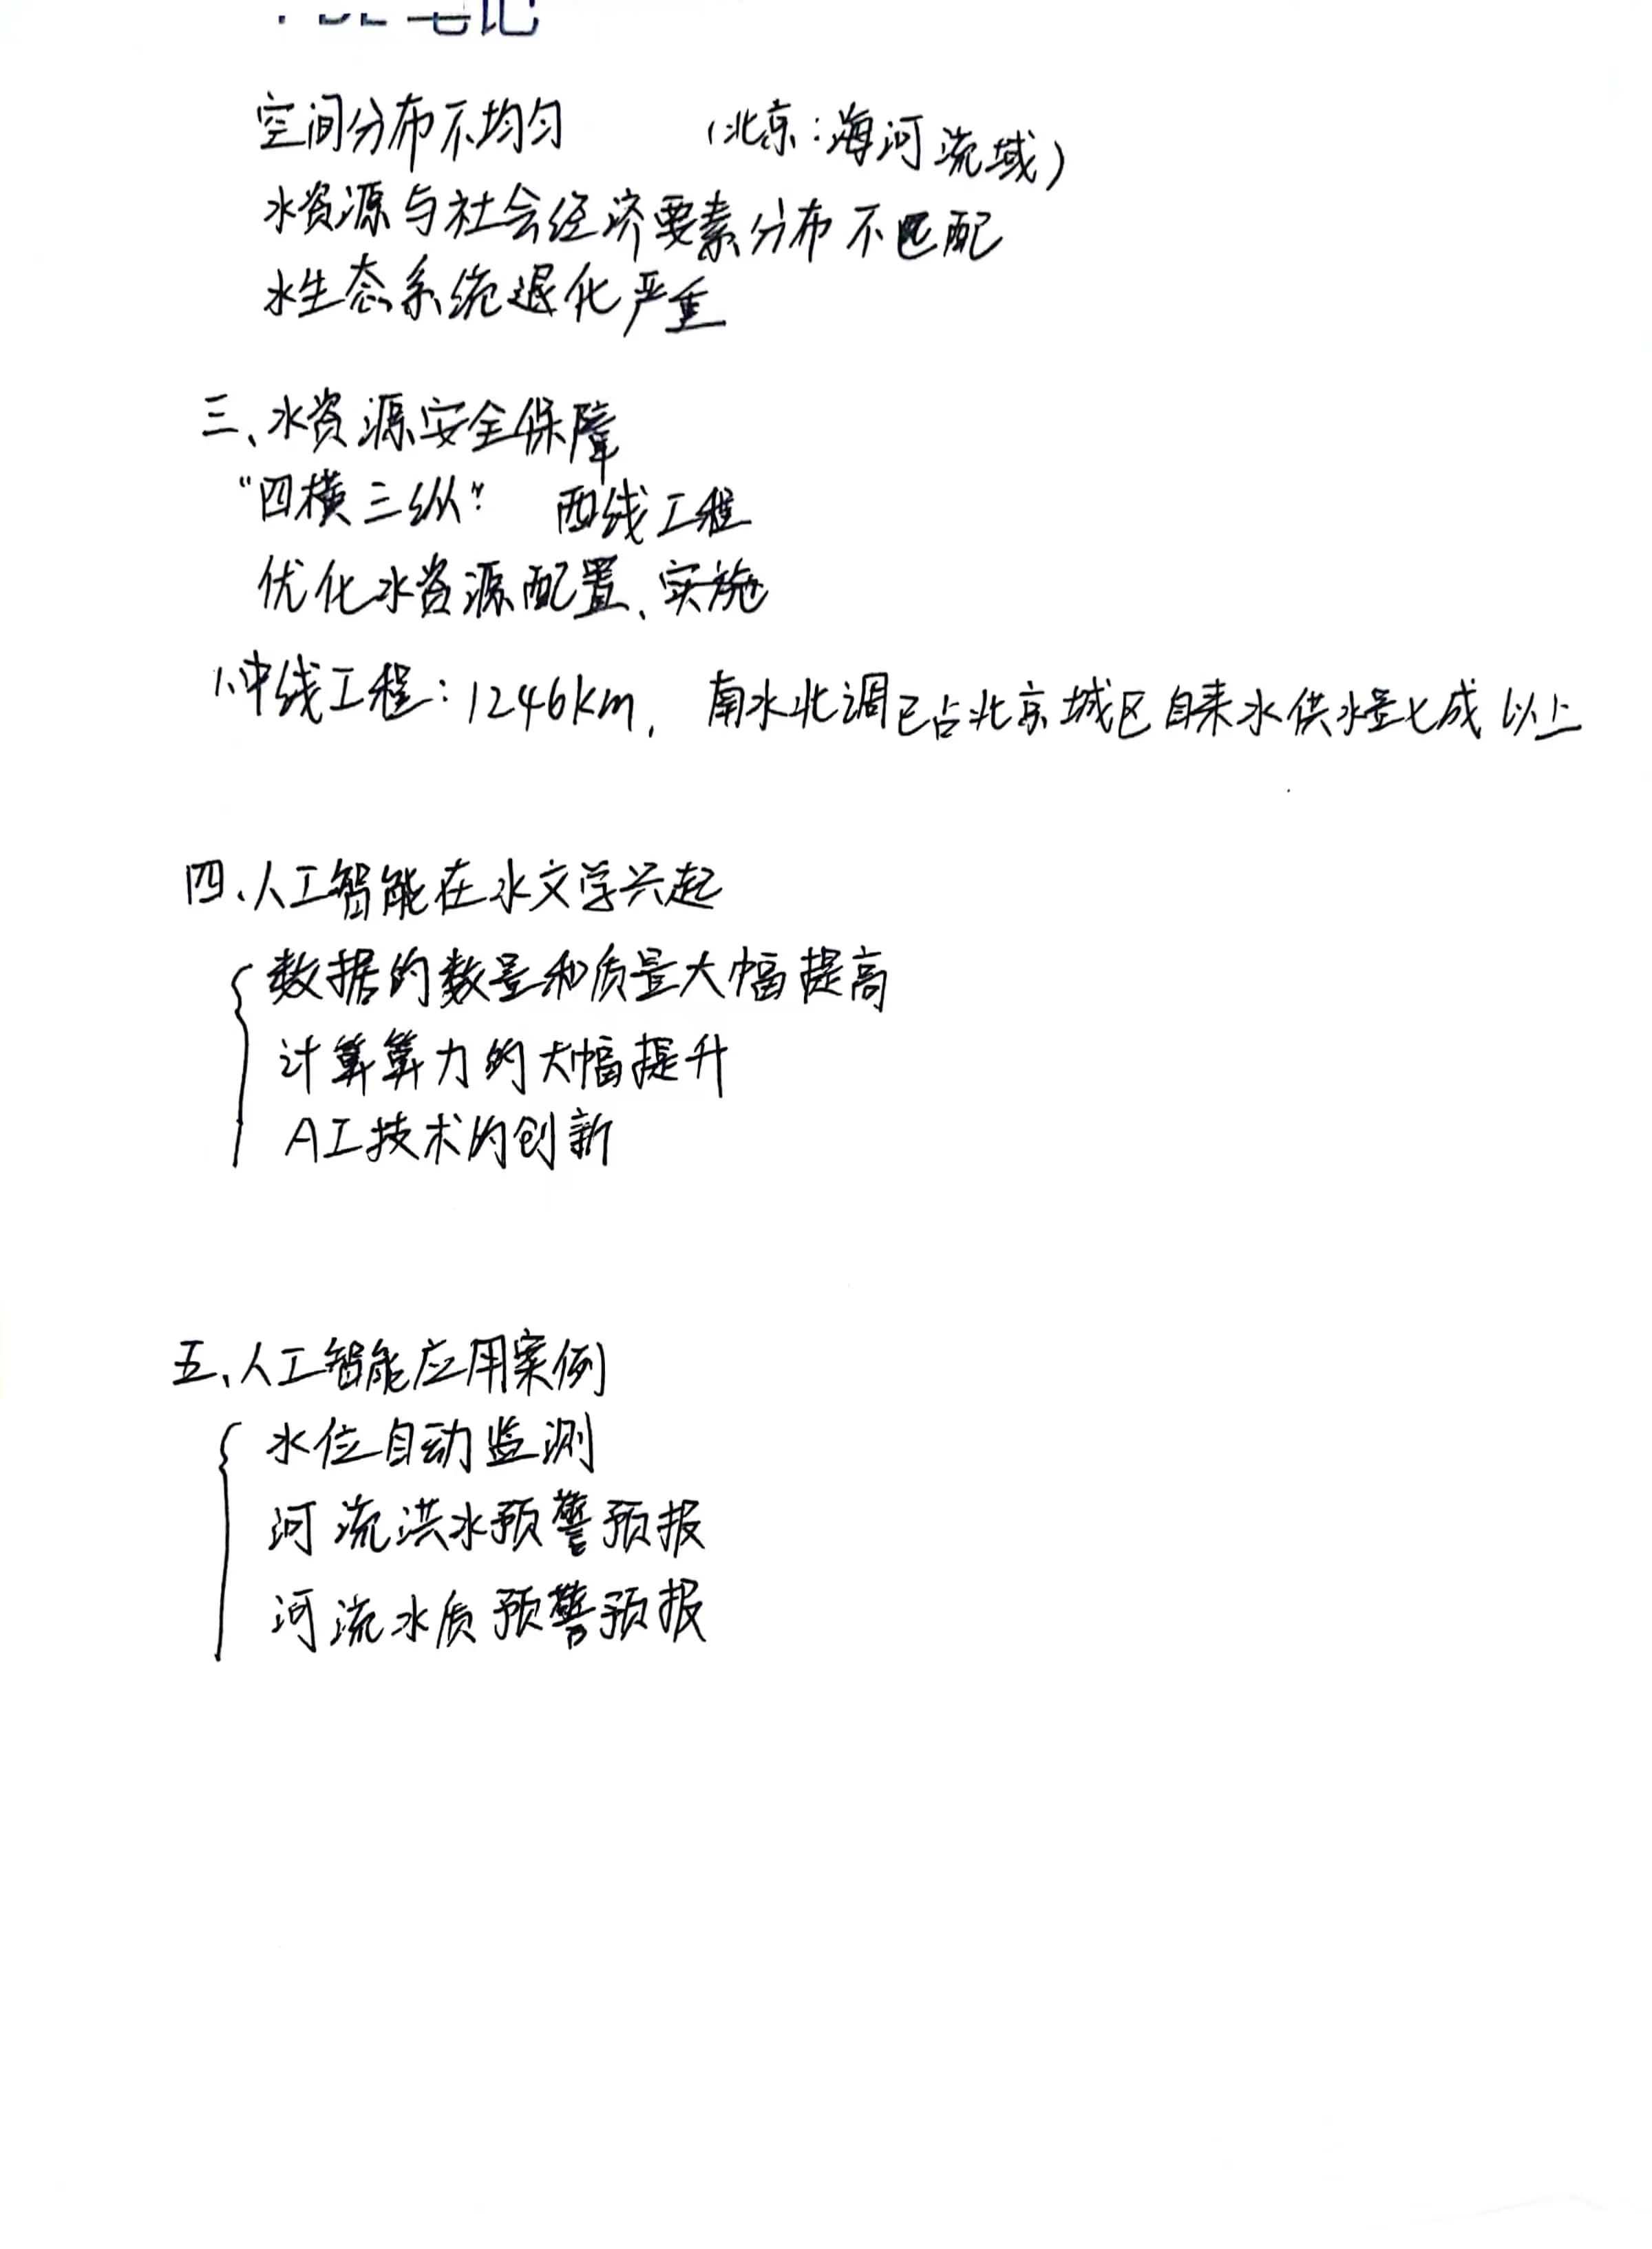 笔记
空间分布不均匀 (北京:海河流域)
水资源与社会经济要素分布不匹配
水生态系统退化严重
三、水资源安全保障
"四横三纵" 西线工程
优化水资源配置、实施
1.中线工程:1246km, 南水北调已占北京城区自来水供水量七成以上
四、人工智能在水文学兴起
数据的数量和质量大幅提高
计算算力的大幅提升
AI技术的创新
五、人工智能应用案例
水位自动监测
河流洪水预警预报
河流水质预警预报